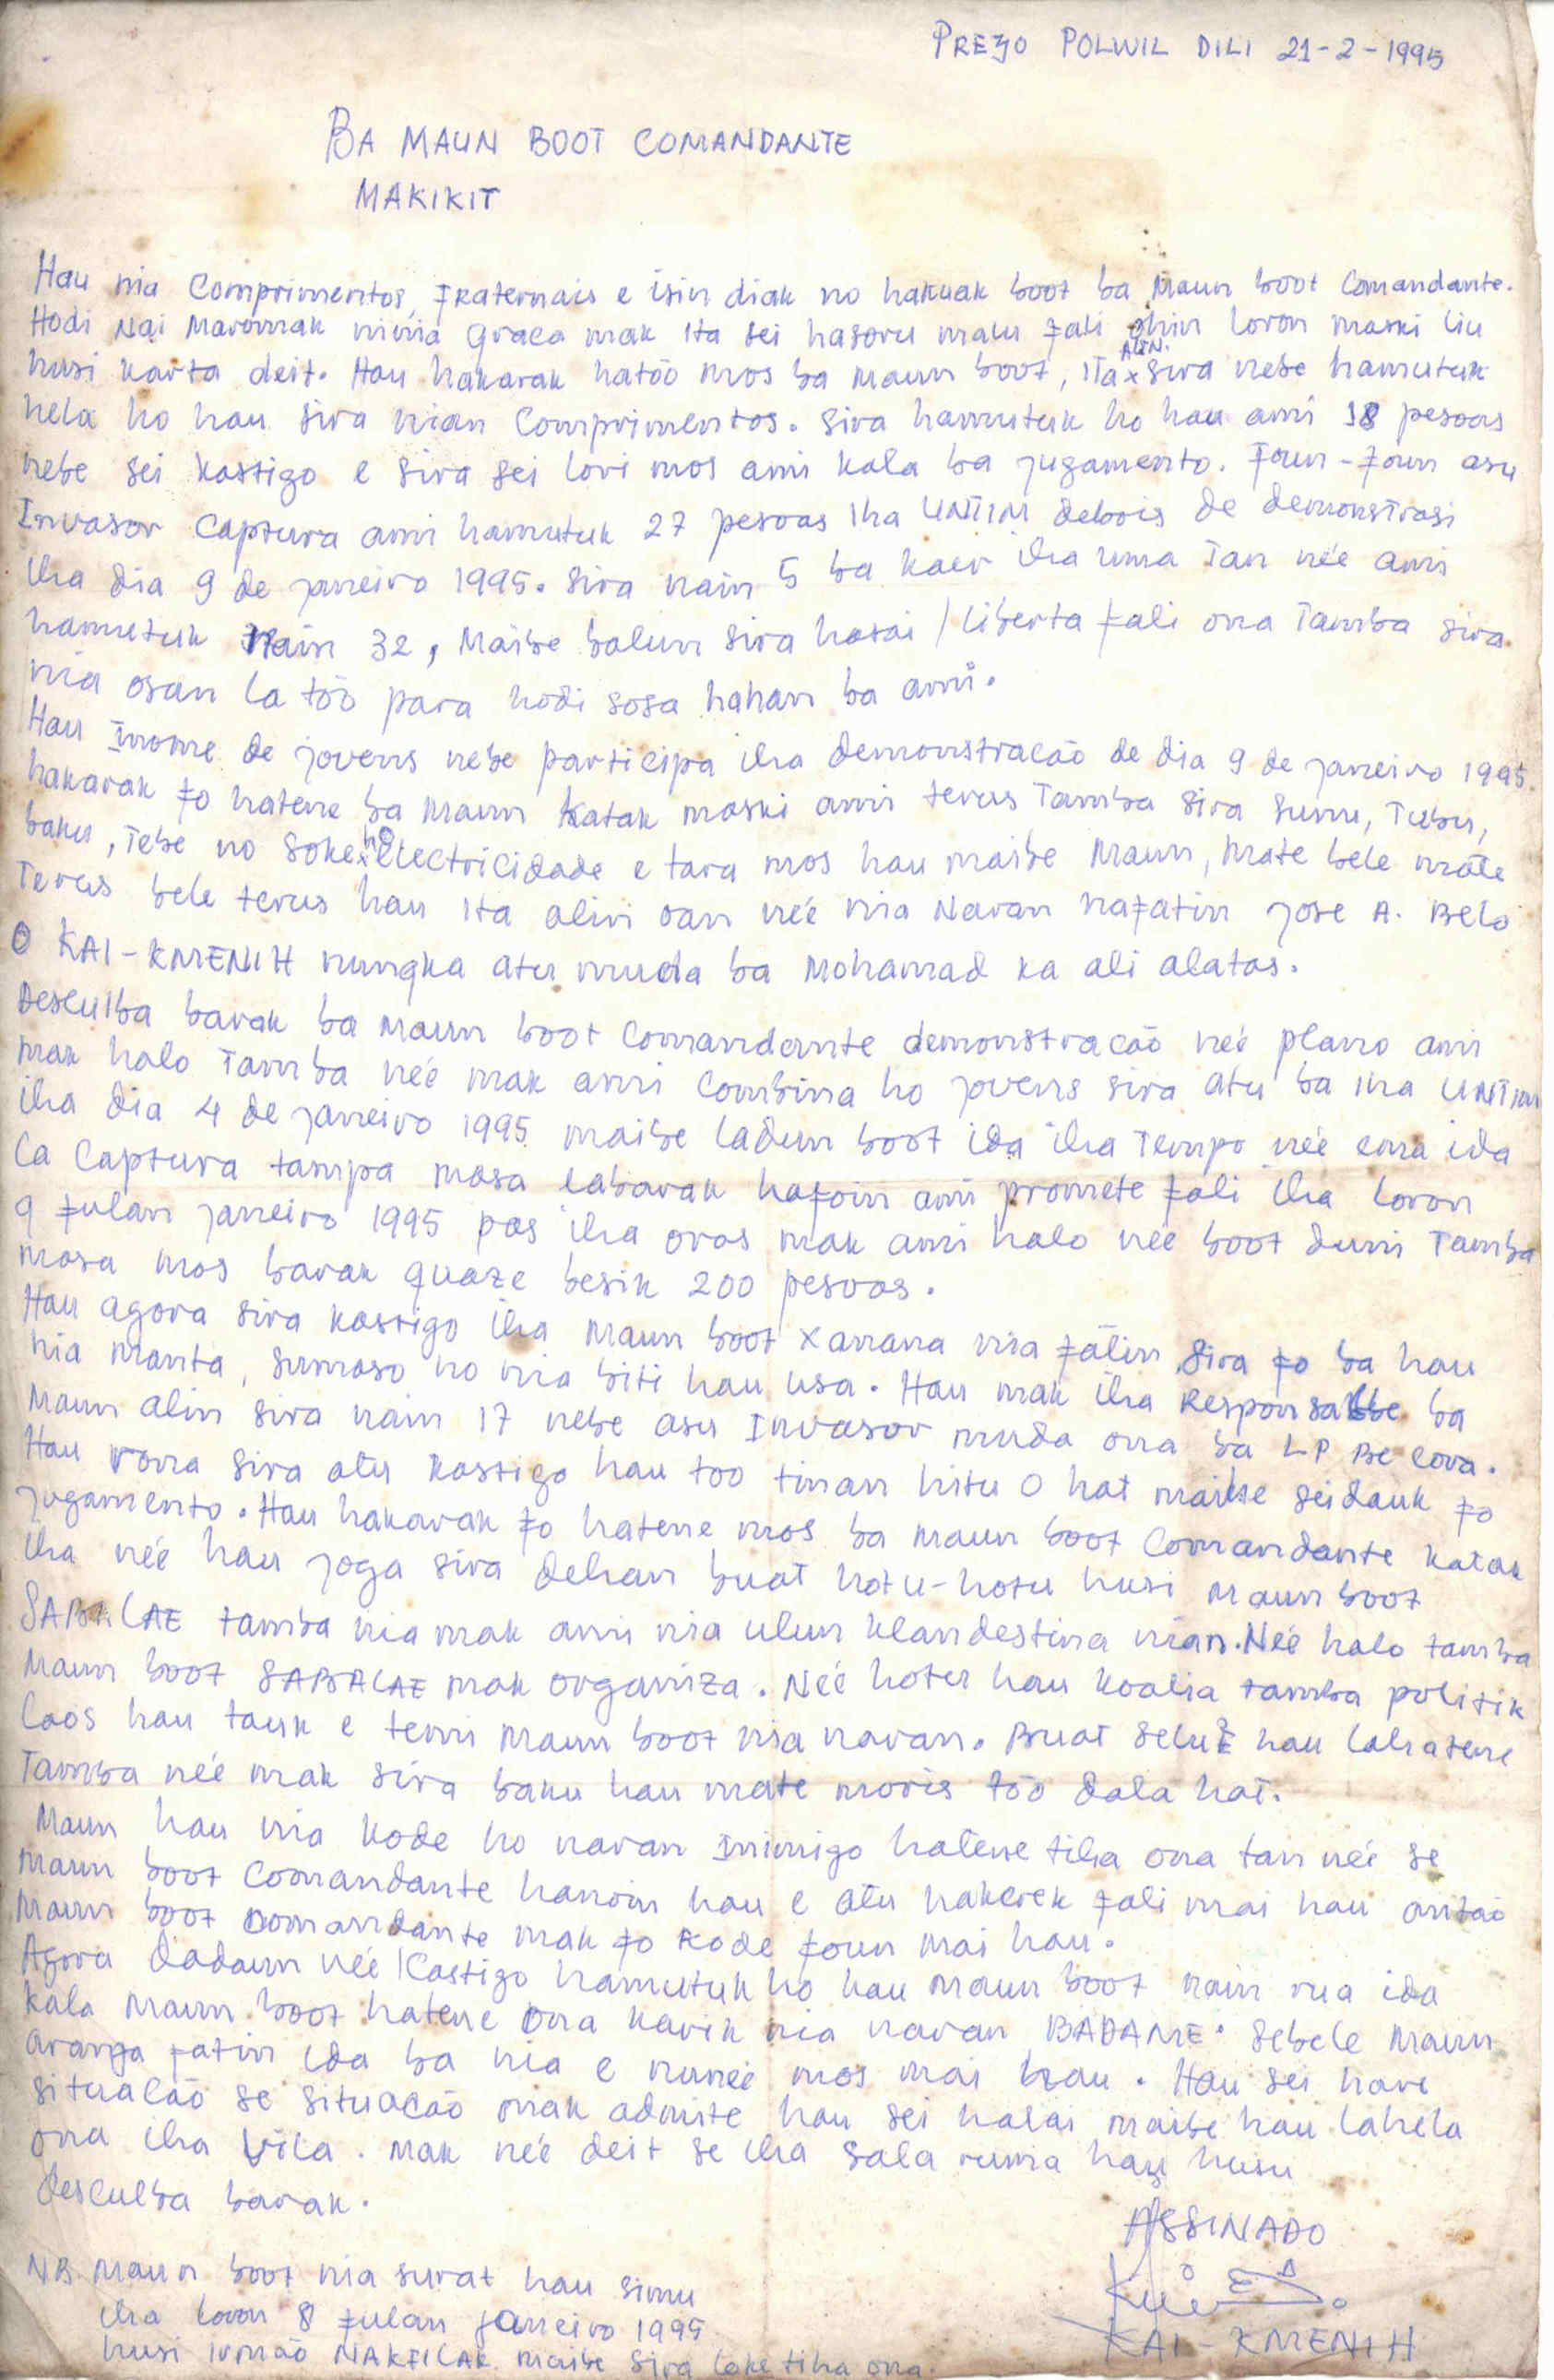 PREZO POLWIL DILI 21-2-1995
BA MAUN BOOT COMANDANTE
MAKIKIT
Hau nia Comprimentos, Fraternais e isin diak no hakuak boot ba Maun boot Comandante.
Hodi Nai Maromak ninia graca mak Ita sei hasoru malu fali ohin loron maski liu
husi karta deit. Hau hakarak hatóo mos ba Maun boot, Ita x ALIN sira nebe hamutuk
hela ho hau sira nian Comprimentos. Sira hamutuk ho hau ami 18 pesoas
nebe sei kastigo e sira sei lori mos ami kala ba jugamento. Foun-foun asu
Invasor Captura ami hamutuk 27 pesoas Iha UNTIM debois de demonstrasi
iha dia 9 de janeiro 1995. Sira nain 5 ba kaer iha uma Tan neé ami
hamutuk nain 32, Maibe balun sira hasai / liberta fali ona Tamba sira
nia osan la tóo para hodi sosa hahan ba ami.
Hau Inome de jovens nebe participa iha demonstracão de dia 9 de janeiro 1995
hakarak fo hatene ba Maun katak maski ami terus Tamba sira sunu, Tubu,
baku, Tebe no soke x ho electricidade e tara mos hau maibe Maun, Mate bele mate
Terus bele terus hau Ita alin oan neé nia Naran nafatin Jose A. Belo
O KAI-KMENIH nungka atu muda ba Mohamad ka ali alatas.
Desculba barak ba Maun boot Comandante demonstracão neé plano ami
mak halo Tamba neé mak ami Combina ho jovens sira atu ba iha UNTIM
iha dia 4 de janeiro 1995 maibe ladun boot ida iha Tempo neé ema ida
la Captura tampa masa labarak hafoin ami promete fali iha loron
9 fulan janeiro 1995 pas iha oras mak ami halo neé boot duni Tamba
masa mos barak quaze besik 200 pesoas.
Hau agora sira kastigo iha Maun boot Xanana nia fatin sira fo ba hau
nia manta, sumaso no nia biti hau usa. Hau mak iha Responsabbe ba
Maun alin sira nain 17 nebe asu Invasor muda ona ba LP Be cora.
Hau rona sira atu kastigo hau too tinan hitu O hat maibe seidauk fo
jugamento. Hau hakarak fo hatene mos ba Maun boot Comandante katak
iha neé hau joga sira dehan buat hotu-hotu husi Maun boot
SABALAE tamba nia mak ami nia ulun klandestina nian. Neé halo tamba
Maun boot SABALAE mak organiza. Neé hotu hau koalia tamba politik
Laos hau tauk e temi Maun boot nia naran. Buat seluk hau lahatene
Tamba neé mak sira baku hau mate moris tóo dala hat.
Maun hau nia kode ho naran Inimigo hatene tiha ona tan neé se
Maun boot Comandante hanoin hau e atu hakerek fali mai hau antão
Maun boot Comandante mak fo kode foun mai hau.
Agora dadaun neé kastigo hamutuk ho hau Maun boot nain rua ida
kala Maun boot hatene ona karik nia naran BADAME. Sebele Maun
aranga fatin ida ba nia e nuneé mos mai hau. Hau sei hare
situacão se situacão mak admite hau sei halai maibe hau lahela
ona iha Vila. Mak neé deit se iha sala ruma hau husu
desculba barak.
ASSINADO
KAI-KMENIH
NB. Maun boot nia surat hau simu
iha loron 8 fulan janeiro 1995
husi irmão NAKFILAK maibe sira loke tiha ona.